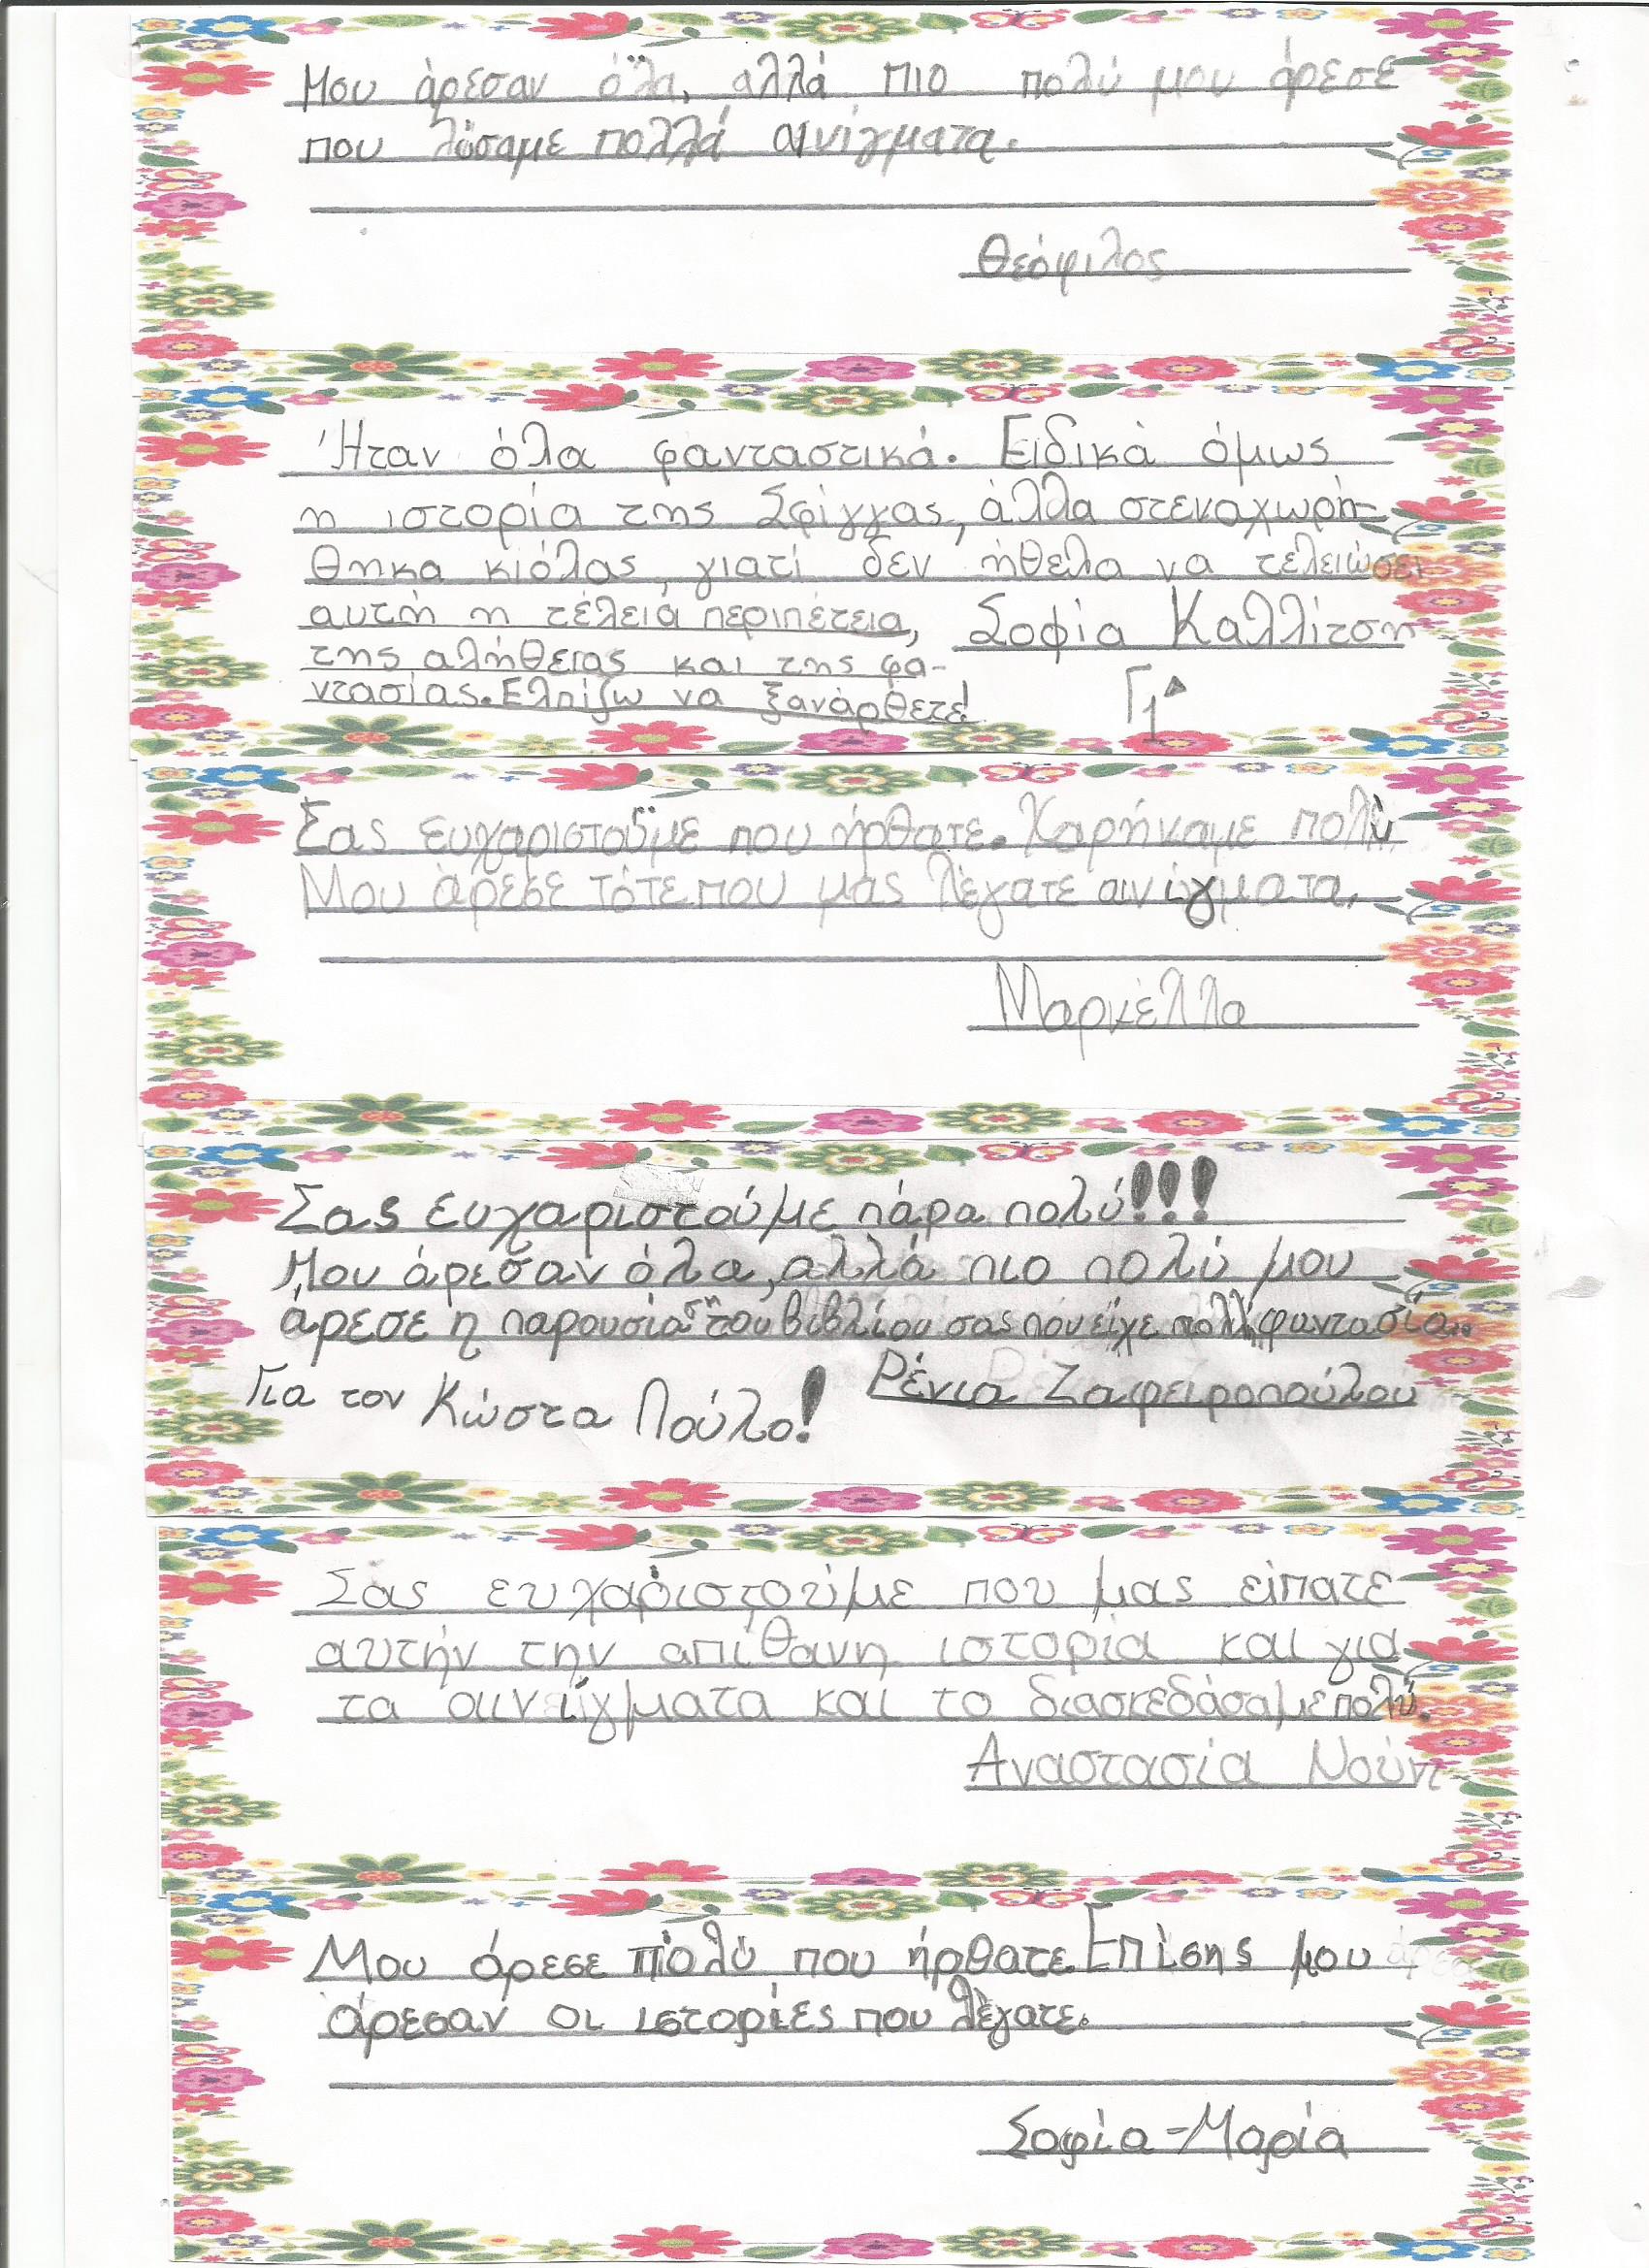 Μου άρεσαν όλα, αλλά πιο πολύ μου άρεσε
που λύσαμε πολλά αινίγματα.
Θεόφιλος
Ήταν όλα φανταστικά. Ειδικά όμως
η ιστορία της Σφίγγας, άλλα στεναχωρή-
θηκα κιόλας, γιατί δεν ήθελα να τελειώσει
αυτή η τέλειά περιπέτεια,
της αλήθειας και της φα-
ντασίας. Ελπίζω να ξανάρθετε!
Σοφία Καλλίτση
Γ1
Σας ευχαριστούμε που ήρθατε. Χαρήκαμε πολύ
Μου άρεσε τότε που μας λέγατε αινίγματα.
Μαρκέλλα
Σας ευχαριστούμε πάρα πολύ!!!
Μου άρεσαν όλα, αλλά πιο πολύ μου
άρεσε η παρουσίαση του βιβλίου σας που είχε πολλή φαντασία..
Για τον Κώστα Πούλο!
Ρένια Ζαφειροπούλου
Σας ευχαριστούμε που μας είπατε
αυτήν την απίθανη ιστορία και για
τα αινίγματα και το διασκεδάσαμε πολύ.
Αναστασία Νούνη
Μου άρεσε πολύ που ήρθατε. Επίσης μου
άρεσαν οι ιστορίες που λέγατε.
Σοφία-Μαρία